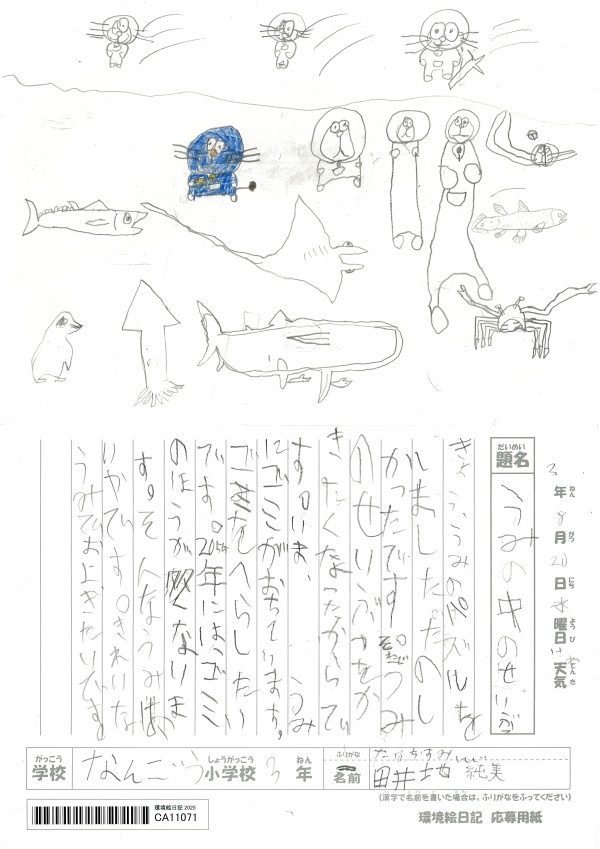 3年8月20日水曜日 天気
ねん がつ にち ようび てんき
だいめい
題名
うみの中のせいぶつ
きょう、うみのパズルを
しました。たのし
かったです。そ
れでうみ
のせいぶつをか
きたくなったからで
す。いま、うみ
にゴミがおちています。
ゴミをへらしたい
です。2050年にはゴミ
のほうが多くなりま
す。そんなうみは
いやです。きれいな
うみでおよぎたいです
がっこう
学校
なんごう
しょうがっこう
小学校
3
ねん
年
ふりがな
名前
純美
(漢字で名前を書いた場合は、ふりがなをふってください)
環境絵日記 2025
CA11071
環境絵日記 応募用紙